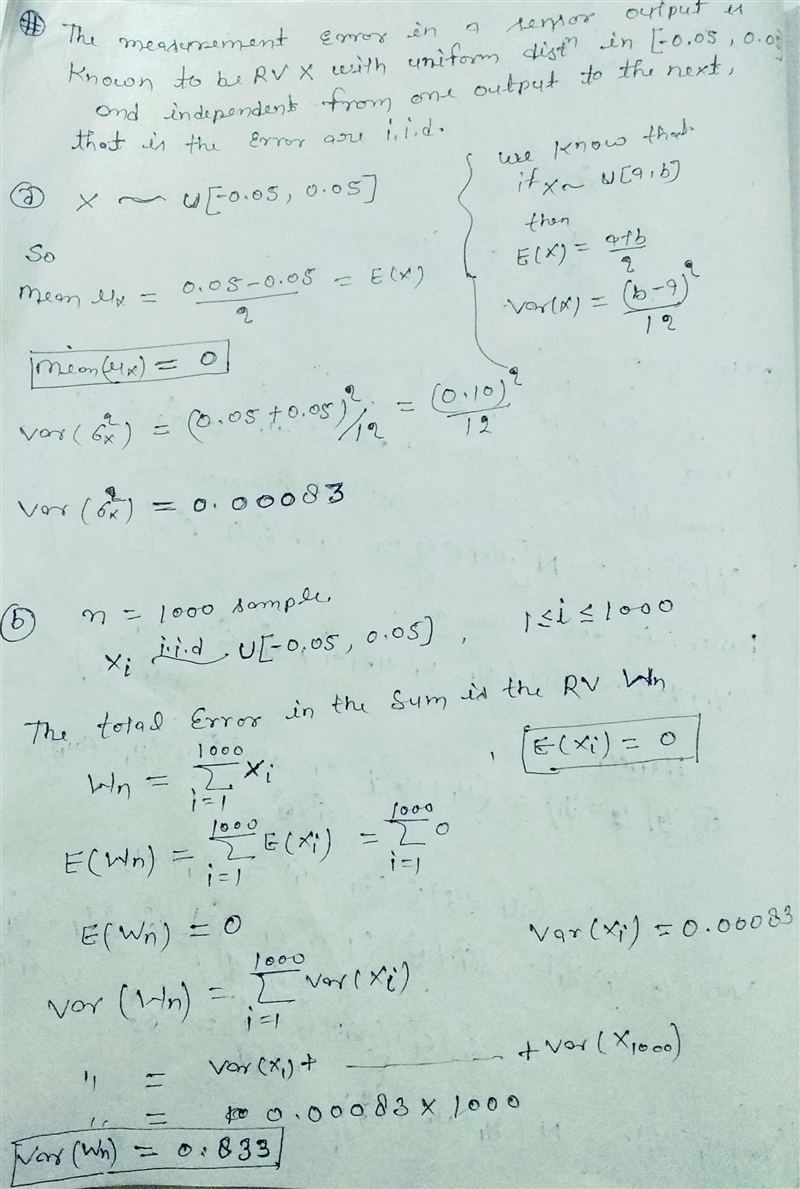 # The measurement Error in a sensor output is
Known to be RV X with uniform distⁿ in [-0.05, 0.05]
and independent from one output to the next,
that is the Error are i.i.d.
we know that
if X ~ U[a,b]
then
E(X) = a+b/2
Var(X) = (b-a)²/12
(a) X ~ U[-0.05, 0.05]
So
mean μx = 0.05-0.05/2 = E(X)
mean(μx) = 0
var(σx²) = (0.05+0.05)²/12 = (0.10)²/12
var(σx²) = 0.00083
(b) n = 1000 sample
Xi i.i.d U[-0.05, 0.05], 1≤i≤1000
The total Error in the Sum is the RV Wn
Wn = 1000 Σ i=1 Xi , E(Xi) = 0
E(Wn) = 1000 Σ i=1 E(Xi) = 1000 Σ i=1 0
E(Wn) = 0 Var(Xi) = 0.00083
Var (Wn) = 1000 Σ i=1 Var(Xi)
" = Var(X1) + ——— + Var(X1000)
" = 0.00083 × 1000
Var(Wn) = 0.833